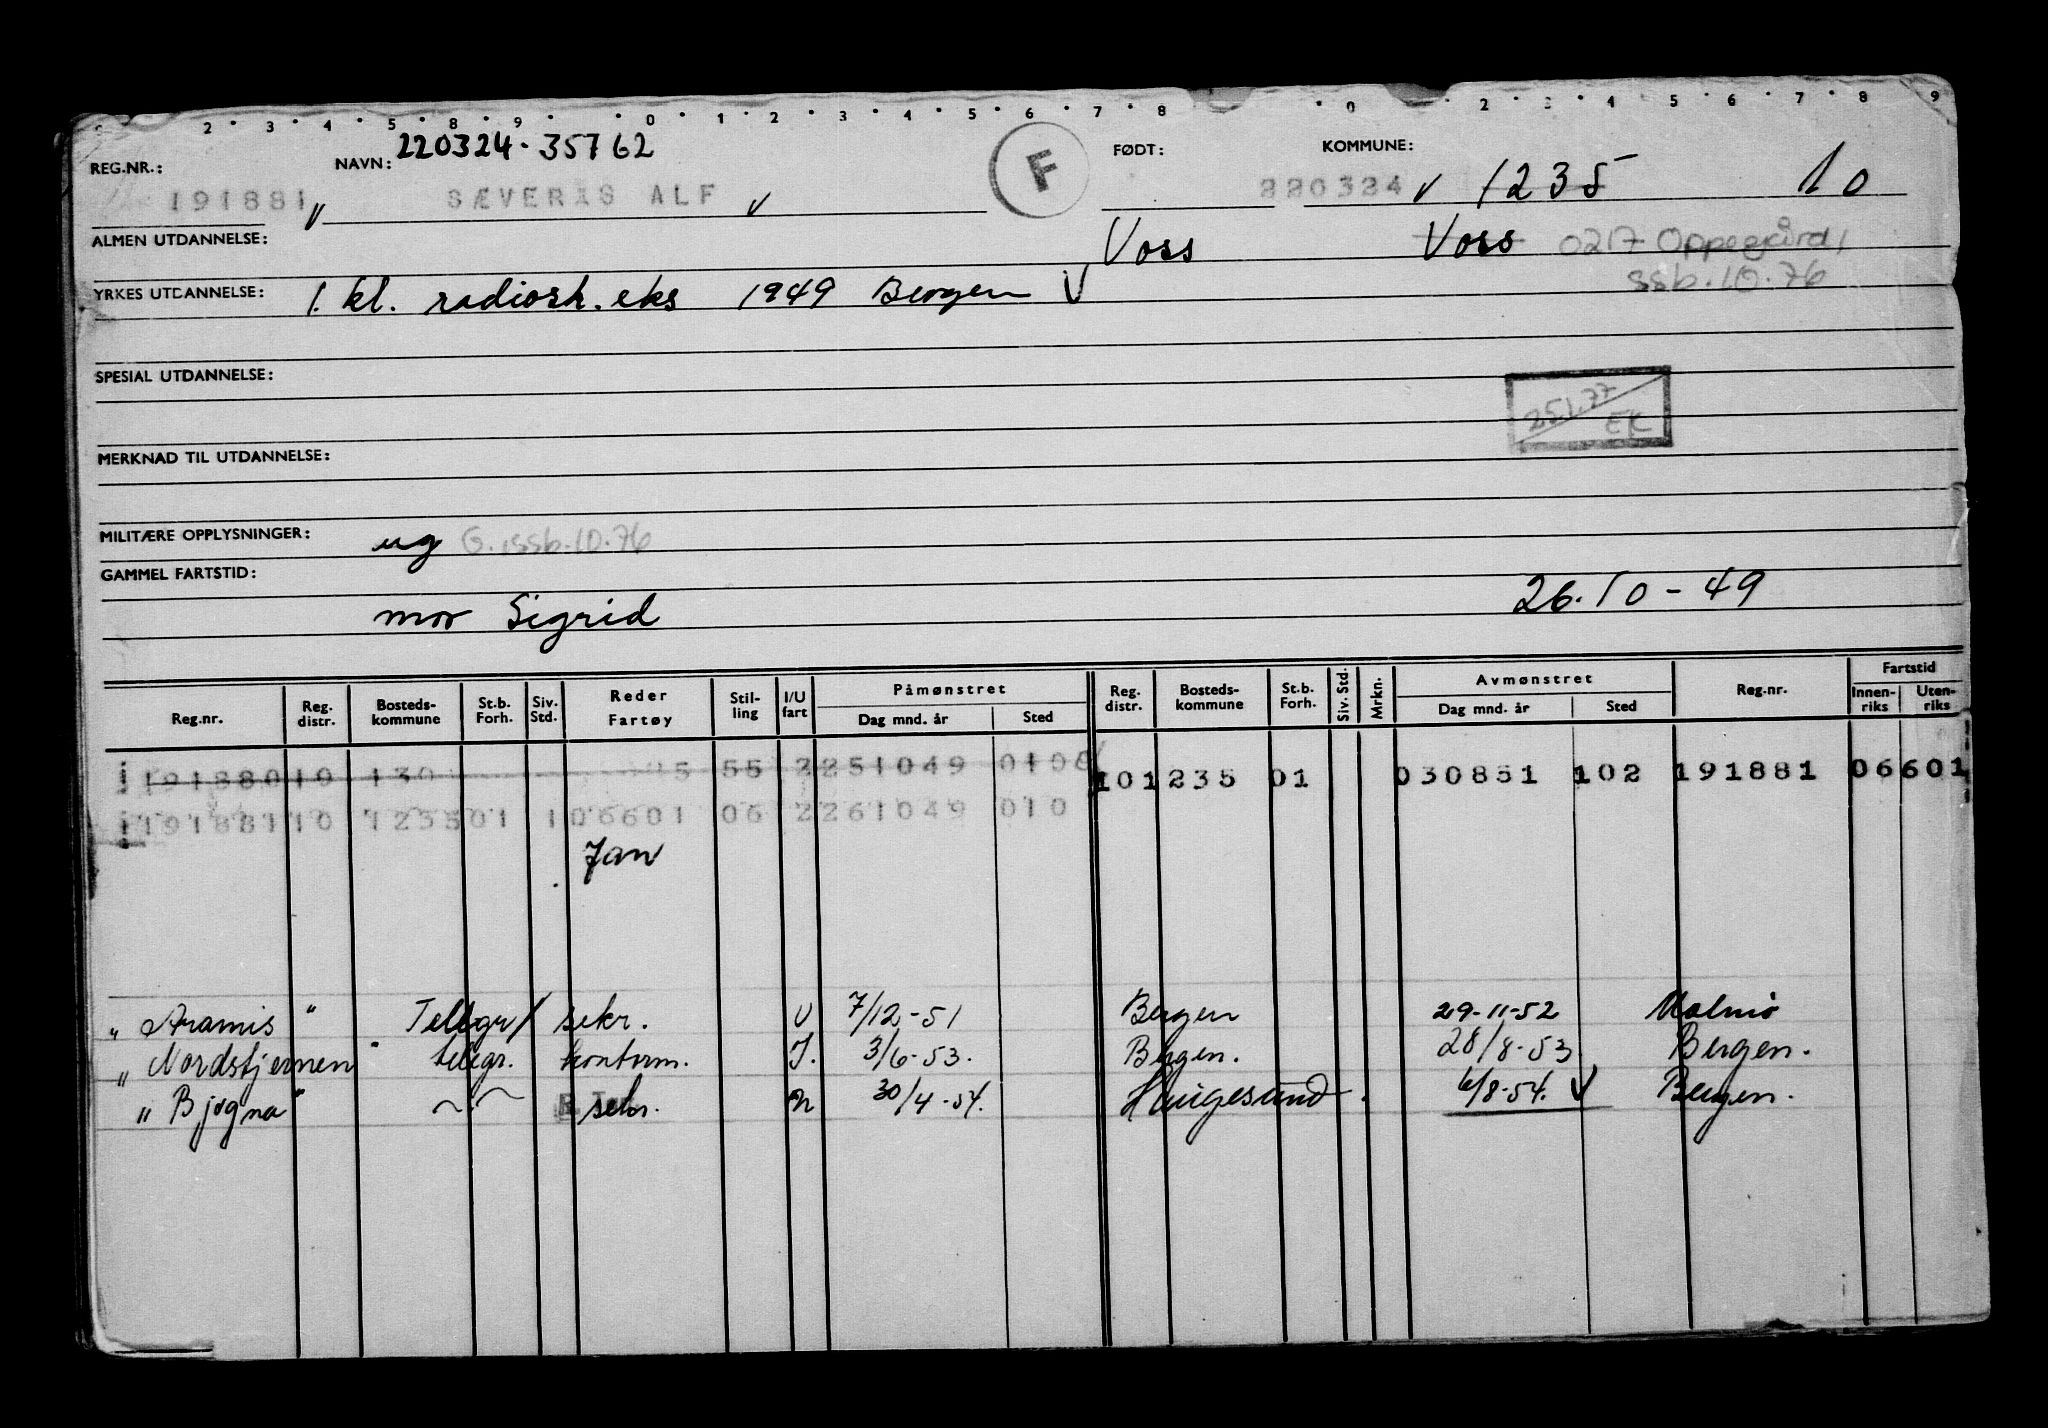 2 · 3 · 4 · 5 · 8 · 9 · 0 · 1 · 2 · 3 · 4 · 5 · 6 · 7 · 8 · 0 · 2 · 3 · 4 5 · 6 · 7 · 8 9
REG.NR.: NAVN: 220324-35762 F FØDT: KOMMUNE:
191881 SÆVERÅS ALF 220324 1235 10
ALMEN UTDANNELSE: Voss Voss 0217 Oppegård,
ssb.10.76
YRKES UTDANNELSE: 1. kl. radiosk. eks 1949 Bergen
SPESIAL UTDANNELSE:
25.1.77
EK
MERKNAD TIL UTDANNELSE:
MILITÆRE OPPLYSNINGER: ug G. ssb.10.76
GAMMEL FARTSTID:
mor Sigrid 26.10-49
Reg.nr. Reg. distr. Bosteds-kommune St.b. Forh. Siv. Std. Reder Fartøy Stil-ling I/U fart Påmønstret Dag mnd. år Sted Reg. distr. Bosteds-kommune St.b. Forh. Siv. Std. Mrkn. Avmønstret Dag mnd. år Sted Reg.nr. Fartstid Innen-riks Uten-riks
191880 10 130 55 2 251049 010 10 1235 01 030851 102 191881 06 601
191881 10 1235 01 1 06601 06 2 261049 010
Jan
" Aramis " Telegr/ sekr. U 7/12-51 Bergen 29-11-52 Malmö
" Nordstjernen " telegr. kontorm. I. 3/6-53. Bergen. 28/8-53 Bergen.
" Bjøgna " sekr. 30/4-54. Haugesund. 6/8-54. Bergen.